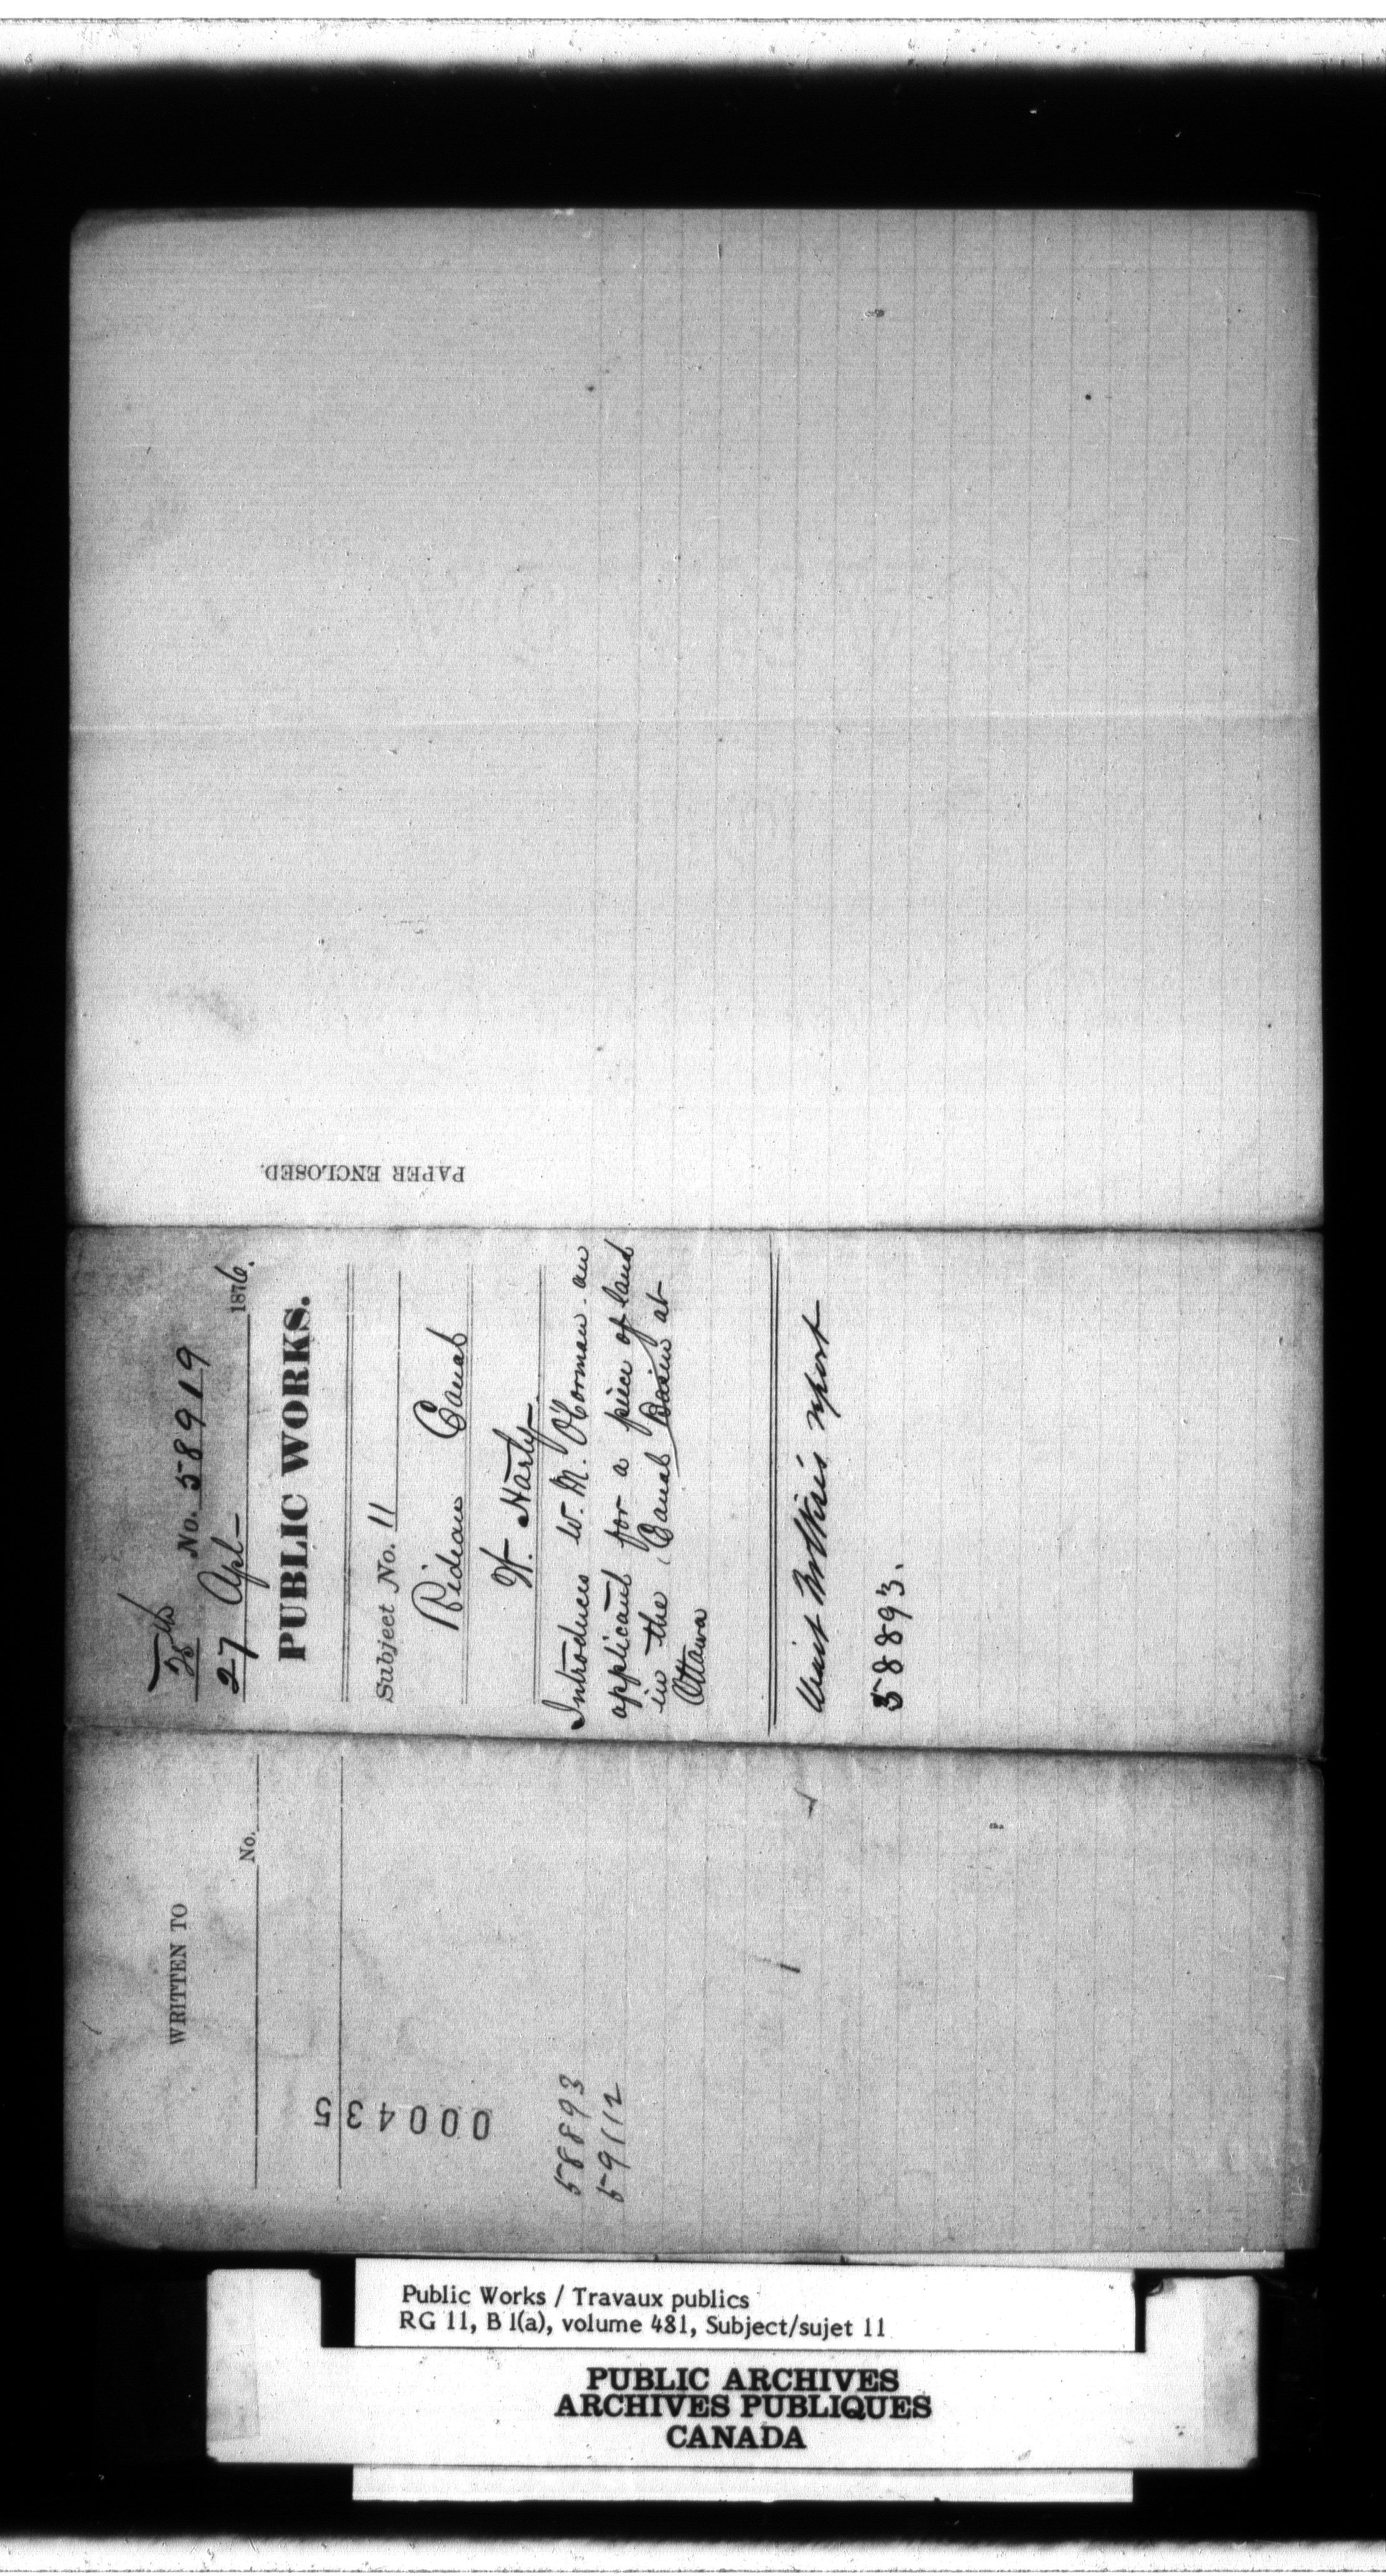 PAPER ENCLOSED.
No. 58919
27 Apl - 1876.
PUBLIC WORKS.
Subject No. 11
Rideau Canal
W. Harty
Introduces W. M. O'Gorman - an
applicant for a piece of land
in the Canal Basin at
Ottawa
Wait report
58893.
WRITTEN TO
No.
000435
58893
59112
Public Works / Travaux publics
RG 11, B 1(a), volume 481, Subject/sujet 11
PUBLIC ARCHIVES
ARCHIVES PUBLIQUES
CANADA